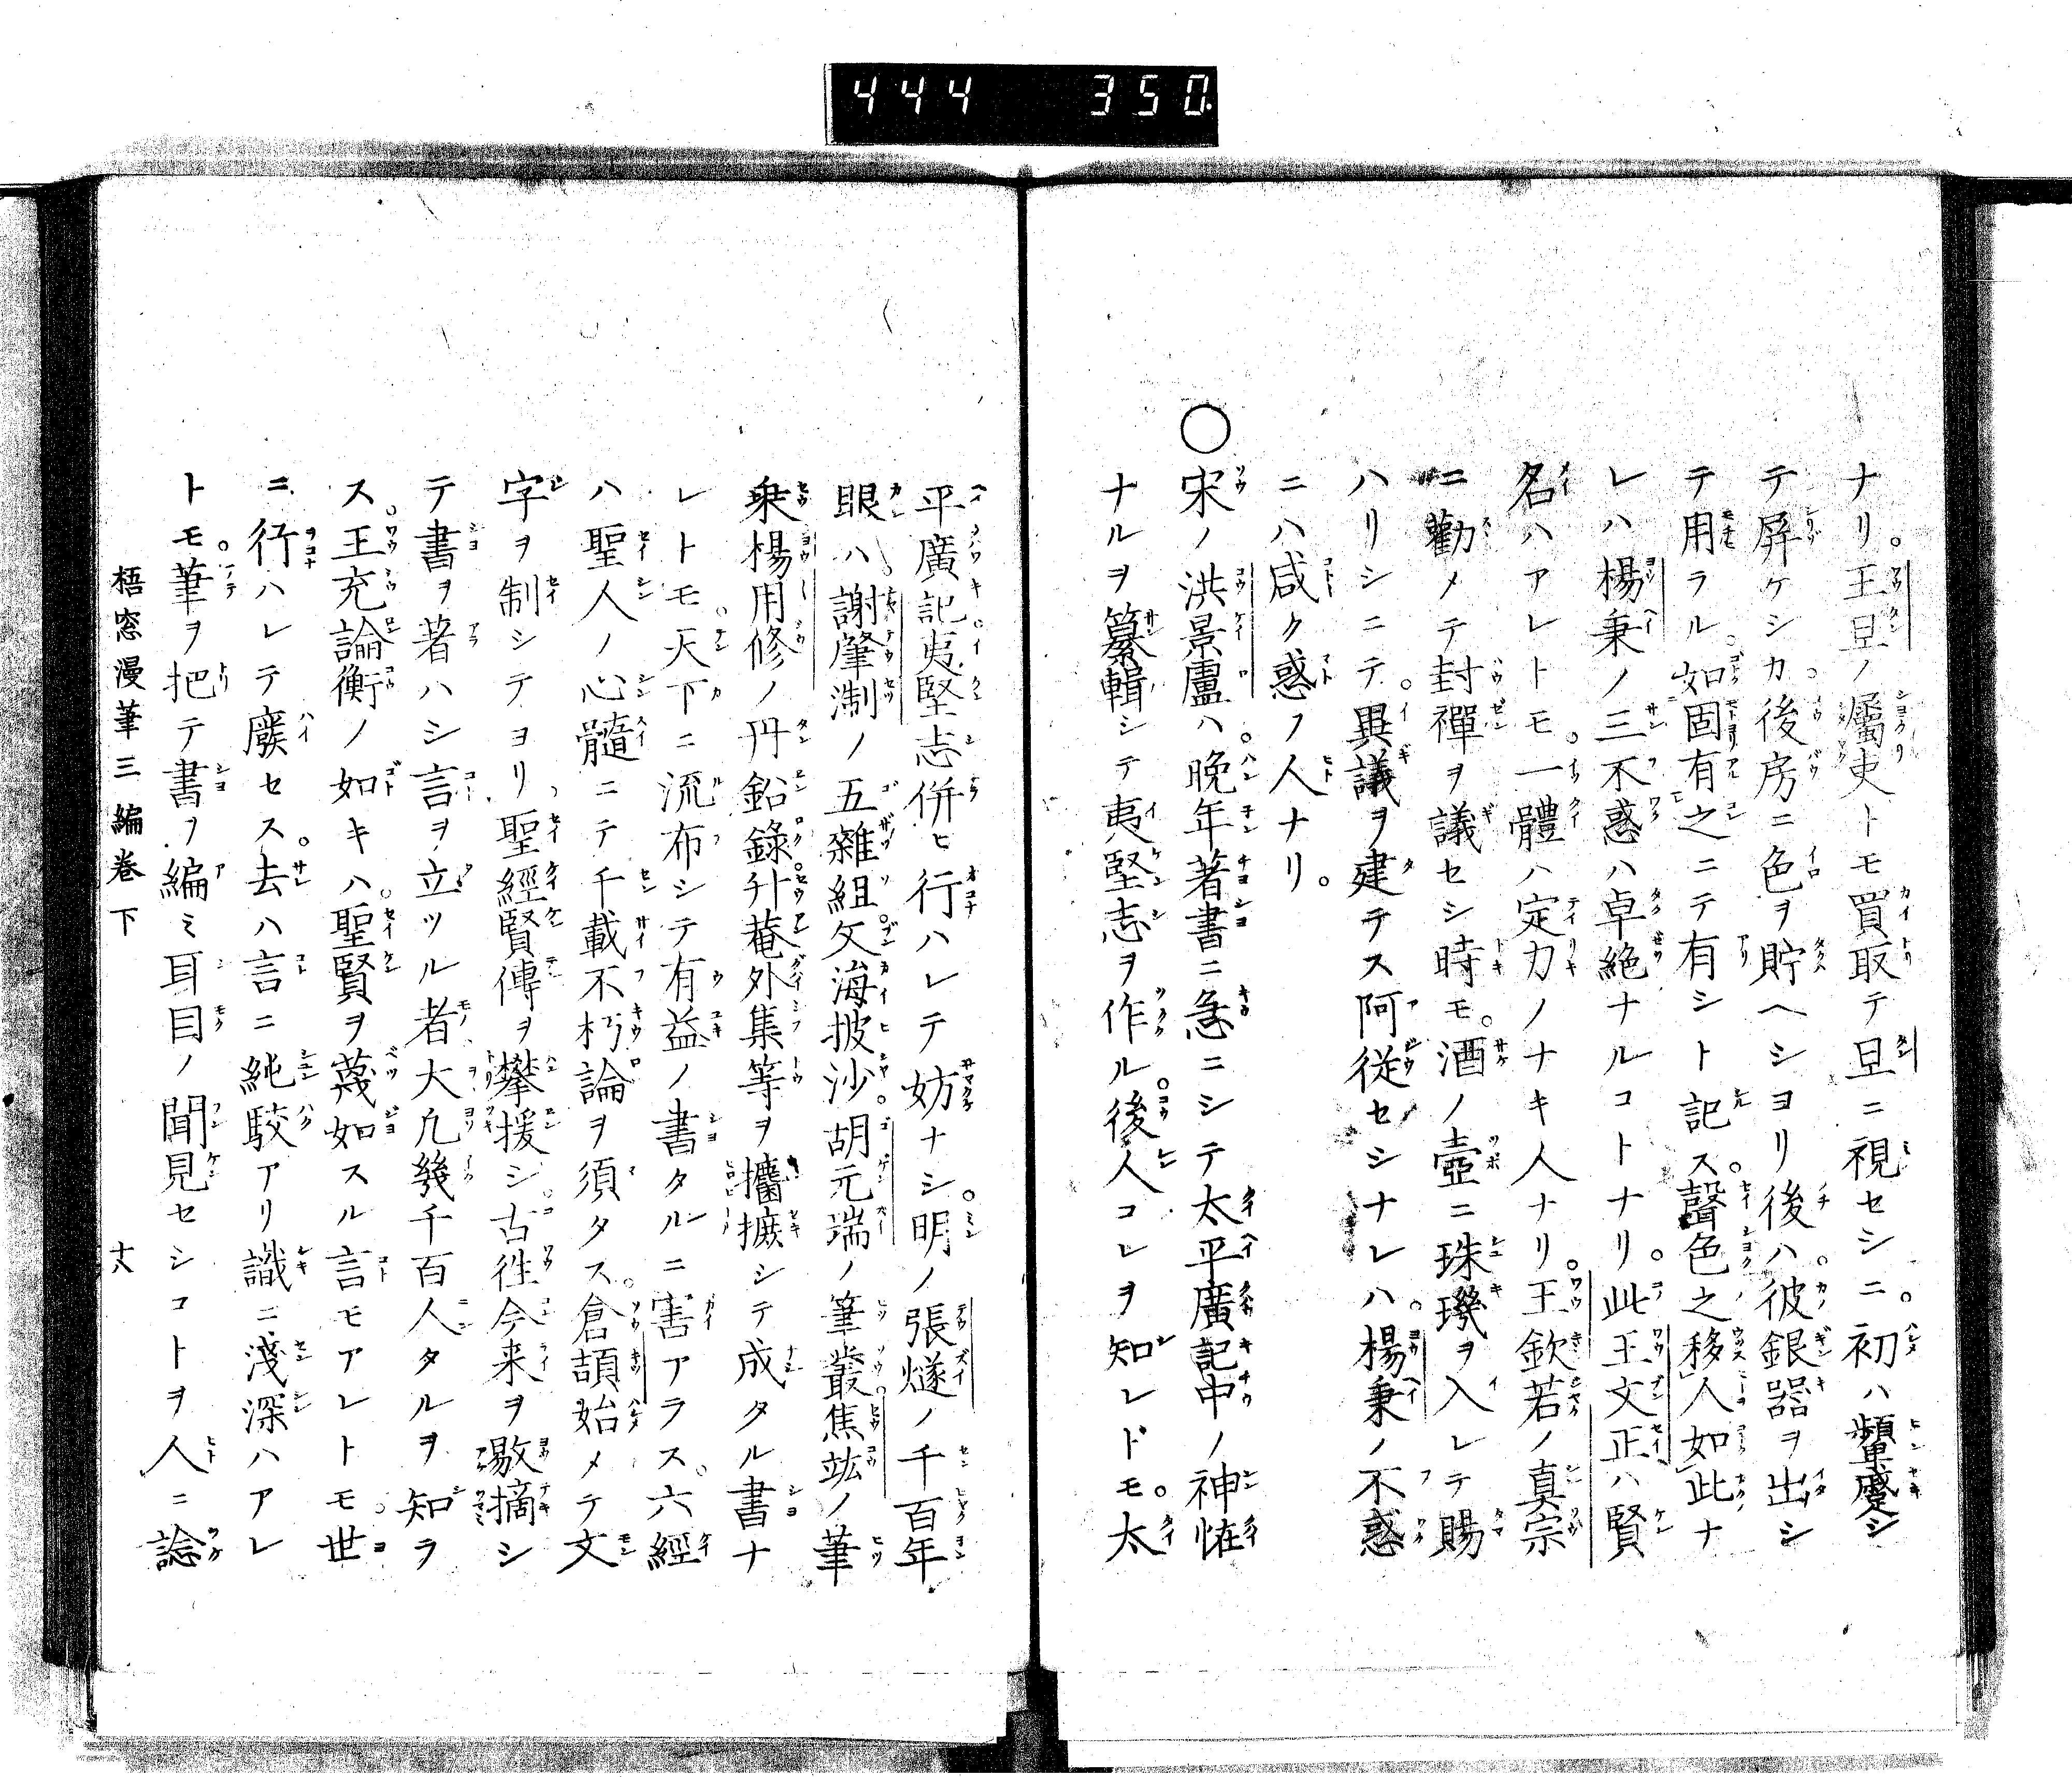 444 350.
ナリ。王旦ノ屬吏トモ買取テ旦ニ視セシニ。初ハ顰蹙シ
テ屏ケシカ。後房ニ色ヲ貯ヘシヨリ後ハ。彼銀器ヲ出シ
テ用ラル。如固有之ニテ有シト記ス。聲色之移人如此ナ
レハ楊秉ノ三不惑ハ卓絶ナルコトナリ。此王文正ハ賢
名ハアレトモ。一體ハ定力ノナキ人ナリ。王欽若ノ真宗
ニ勸メテ封禪ヲ議セシ時モ。酒ノ壺ニ珠璣ヲ入レテ賜
ハリシニテ。異議ヲ建テス阿從セシナレハ。楊秉ノ不惑
ニハ咸ク惑フ人ナリ。
○宋ノ洪景盧ハ。晩年著書ニ急ニシテ太平廣記中ノ神怪
ナルヲ纂輯シテ夷堅志ヲ作ル。後人コレヲ知レドモ。太
平廣記。夷堅志併ヒ行ハレテ妨ナシ。明ノ張燧ノ千百年
眼ハ。謝肇淛ノ五雜組。文海披沙。胡元瑞ノ筆叢。焦竑ノ筆
乗楊用修ノ丹鉛錄。升菴外集等ヲ攟摭シテ成タル書ナ
レトモ。天下ニ流布シテ有益ノ書タルニ害アラス。六經
ハ聖人ノ心髓ニテ千載不朽論ヲ須タス。倉頡始メテ文
字ヲ制シテヨリ聖經賢傳ヲ攀援シ。古徃今来ヲ激摘シ
テ書ヲ著ハシ言ヲ立ツル者大凡幾千百人タルヲ知ラ
ス。王充論衡ノ如キハ。聖賢ヲ蔑如スル言モアレトモ。世
ニ行ハレテ廢セス。去ハ言ニ純駁アリ識ニ淺深ハアレ
トモ。筆ヲ把テ書ヲ編ミ耳目ノ聞見セシコトヲ人ニ諗
梧窓漫筆三編卷下 十八